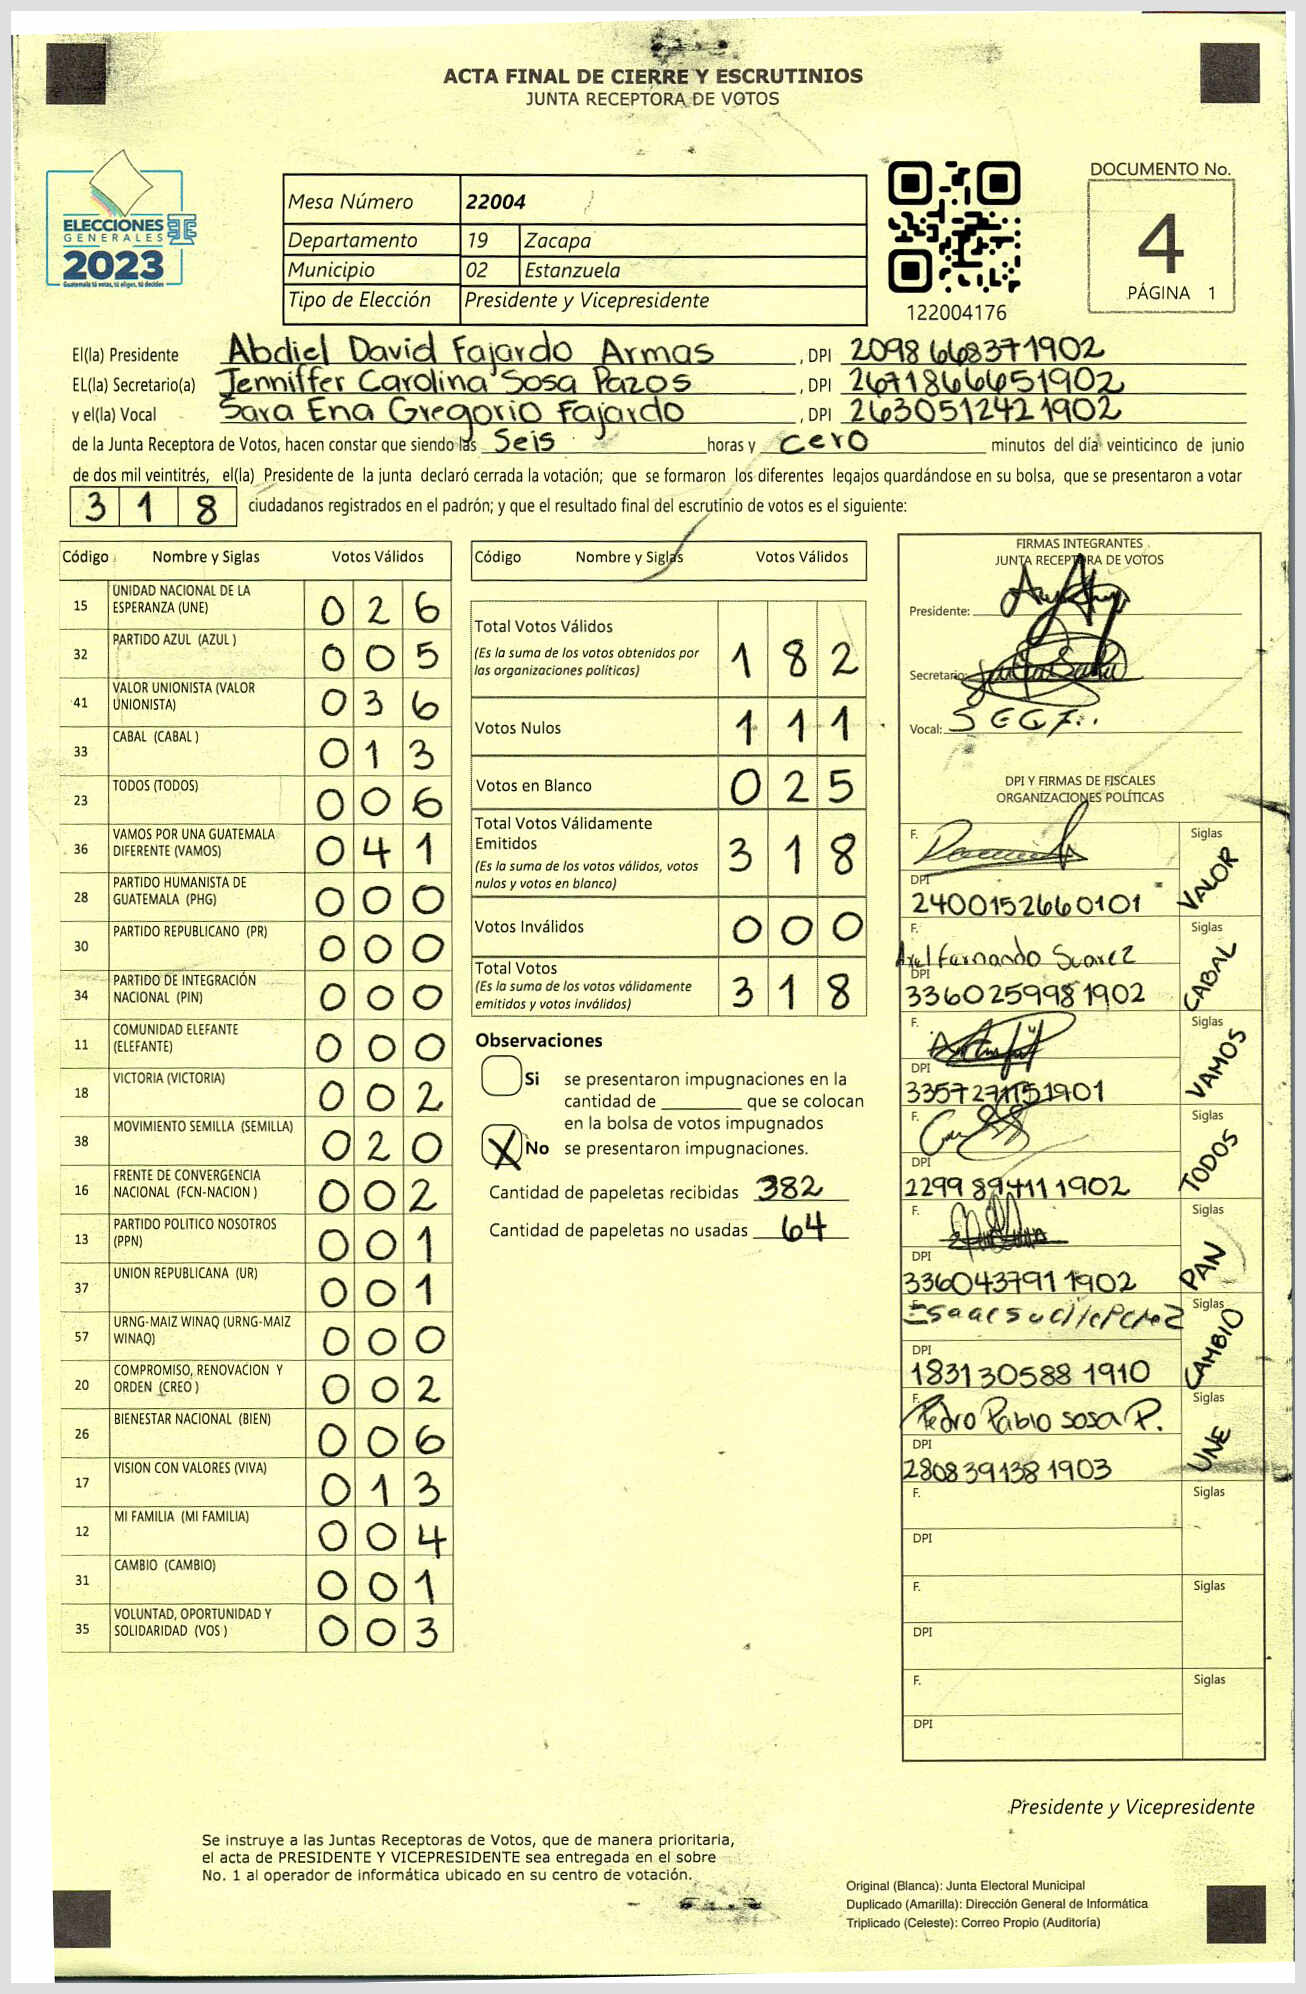 ACTA FINAL DE CIERRE Y ESCRUTINIOS
JUNTA RECEPTORA DE VOTOS
ELECCIONES
GENERALES
2023
Guatemala tú votas, tú eliges, tú decides
Mesa Número 22004
Departamento 19 Zacapa
Municipio 02 Estanzuela
Tipo de Elección Presidente y Vicepresidente
122004176
DOCUMENTO No.
4
PÁGINA 1
El(la) Presidente Abdiel David Fajardo Armas , DPI 2098668371902
EL(la) Secretario(a) Jenniffer Carolina Sosa Pazos , DPI 2671866651902
y el(la) Vocal Sara Ena Gregorio Fajardo , DPI 2630512421902
de la Junta Receptora de Votos, hacen constar que siendo las Seis horas y cero minutos del día veinticinco de junio
de dos mil veintitrés, el(la) Presidente de la junta declaró cerrada la votación; que se formaron los diferentes legajos guardándose en su bolsa, que se presentaron a votar
318 ciudadanos registrados en el padrón; y que el resultado final del escrutinio de votos es el siguiente:
Código Nombre y Siglas Votos Válidos
15 UNIDAD NACIONAL DE LA ESPERANZA (UNE) 026
32 PARTIDO AZUL (AZUL ) 005
41 VALOR UNIONISTA (VALOR UNIONISTA) 036
33 CABAL (CABAL ) 013
23 TODOS (TODOS) 006
36 VAMOS POR UNA GUATEMALA DIFERENTE (VAMOS) 041
28 PARTIDO HUMANISTA DE GUATEMALA (PHG) 000
30 PARTIDO REPUBLICANO (PR) 000
34 PARTIDO DE INTEGRACIÓN NACIONAL (PIN) 000
11 COMUNIDAD ELEFANTE (ELEFANTE) 000
18 VICTORIA (VICTORIA) 002
38 MOVIMIENTO SEMILLA (SEMILLA) 020
16 FRENTE DE CONVERGENCIA NACIONAL (FCN-NACION ) 002
13 PARTIDO POLITICO NOSOTROS (PPN) 001
37 UNION REPUBLICANA (UR) 001
57 URNG-MAIZ WINAQ (URNG-MAIZ WINAQ) 000
20 COMPROMISO, RENOVACION Y ORDEN (CREO ) 002
26 BIENESTAR NACIONAL (BIEN) 006
17 VISION CON VALORES (VIVA) 013
12 MI FAMILIA (MI FAMILIA) 004
31 CAMBIO (CAMBIO) 001
35 VOLUNTAD, OPORTUNIDAD Y SOLIDARIDAD (VOS ) 003
Código Nombre y Siglas Votos Válidos
Total Votos Válidos 182
(Es la suma de los votos obtenidos por
las organizaciones políticas)
Votos Nulos 111
Votos en Blanco 025
Total Votos Válidamente
Emitidos 318
(Es la suma de los votos válidos, votos
nulos y votos en blanco)
Votos Inválidos 000
Total Votos 318
(Es la suma de los votos válidamente
emitidos y votos inválidos)
Observaciones
Si se presentaron impugnaciones en la
cantidad de ________ que se colocan
en la bolsa de votos impugnados
X No se presentaron impugnaciones.
Cantidad de papeletas recibidas 382
Cantidad de papeletas no usadas 64
FIRMAS INTEGRANTES
JUNTA RECEPTORA DE VOTOS
Presidente:
Secretario:
Vocal: S E G F..
DPI Y FIRMAS DE FISCALES
ORGANIZACIONES POLÍTICAS
F. Siglas VALOR
DPI
2400152660101
F. Axel Fernando Suarez Siglas CABAL
DPI
3360259981902
F. Siglas VAMOS
DPI
3357271151901
F. Siglas TODOS
DPI
2299894111902
F. Siglas PAN
DPI
3360437911902
F. Siglas CAMBIO
DPI
1831305881910
F. Pedro Pablo Sosa P. Siglas UNE
DPI
2808391381903
F. Siglas
DPI
F. Siglas
DPI
F. Siglas
DPI
Presidente y Vicepresidente
Se instruye a las Juntas Receptoras de Votos, que de manera prioritaria,
el acta de PRESIDENTE Y VICEPRESIDENTE sea entregada en el sobre
No. 1 al operador de informática ubicado en su centro de votación.
Original (Blanca): Junta Electoral Municipal
Duplicado (Amarilla): Dirección General de Informática
Triplicado (Celeste): Correo Propio (Auditoría)